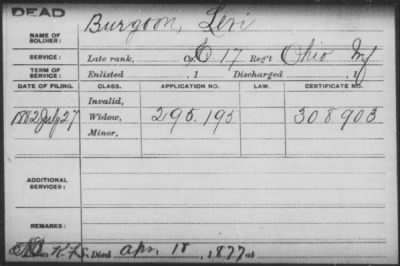 DEAD
NAME OF SOLDIER: Burgoon, Levi
SERVICE: Late rank, Co. E 17 Reg't Ohio Inf
TERM OF SERVICE: Enlisted , 1 Discharged , 1
DATE OF FILING. CLASS. APPLICATION NO. LAW. CERTIFICATE NO.
Invalid,
1882 July 27 Widow, 295.195 308903
Minor,
ADDITIONAL SERVICES:
REMARKS:
Died Apr. 18, 1877 at